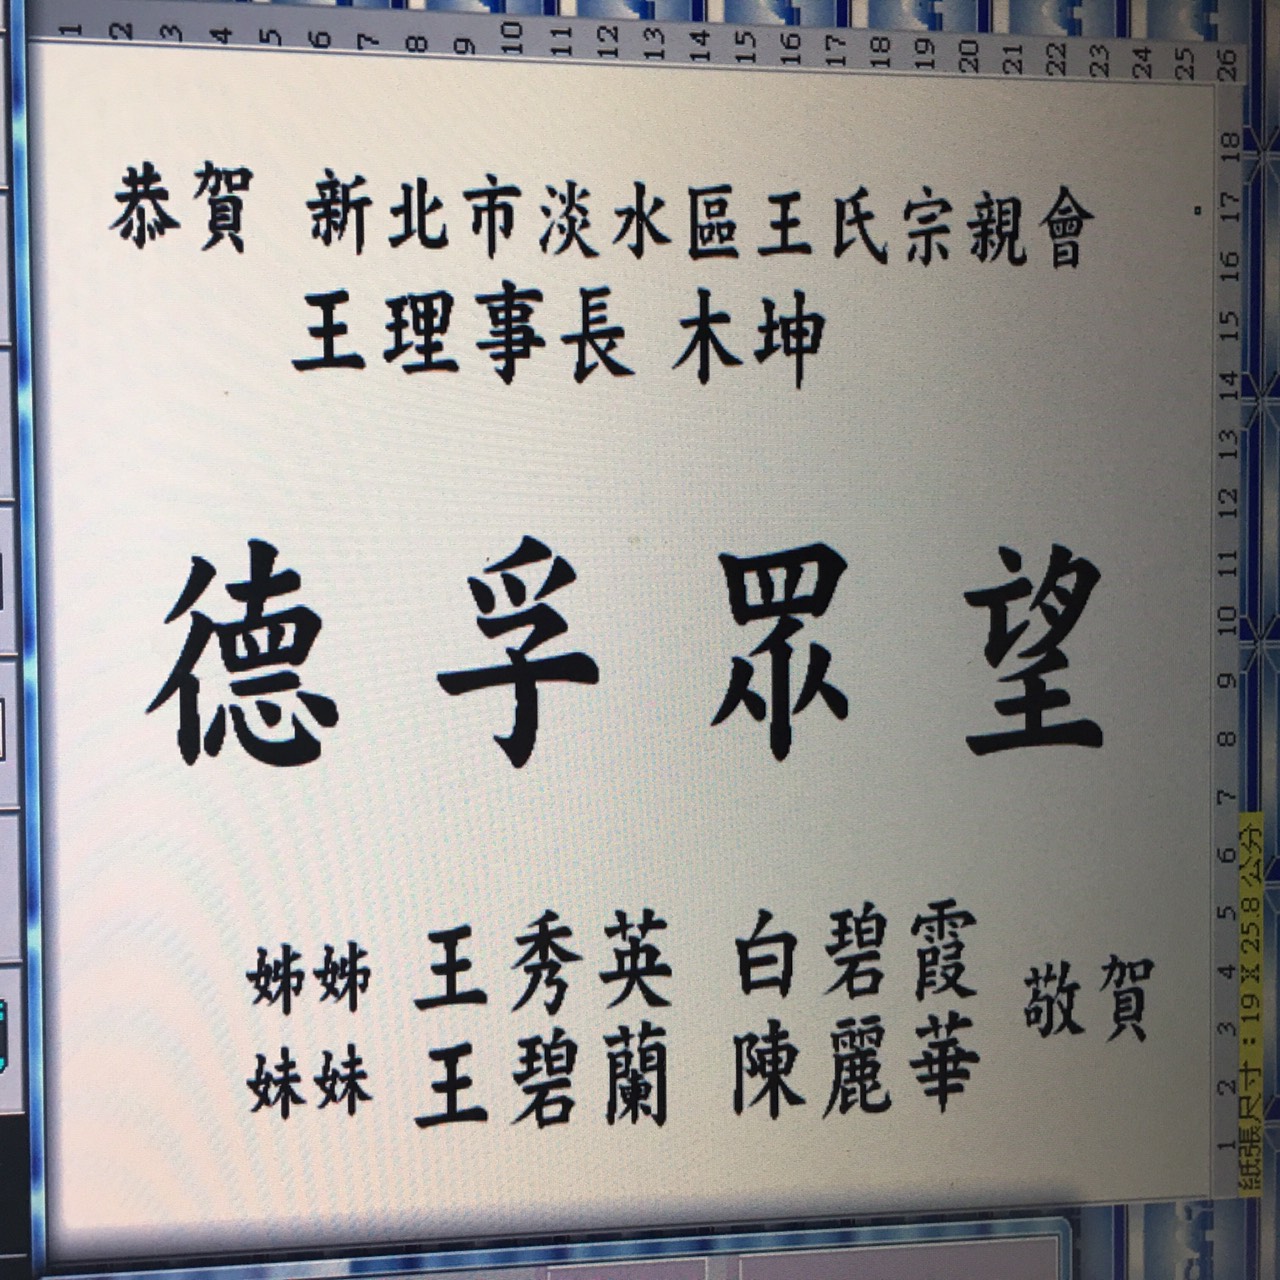 1 2 3 4 5 6 7 8 9 10 11 12 13 14 15 16 17 18 19 20 21 22 23 24 25 26
恭賀 新北市淡水區王氏宗親會
王理事長 木坤
德孚眾望
姊姊 王秀英 白碧霞
妹妹 王碧蘭 陳麗華
敬賀
1 2 3 4 5 6 7 8 9 10 11 12 13 14 15 16 17 18
紙張尺寸：19 X 25.8 公分